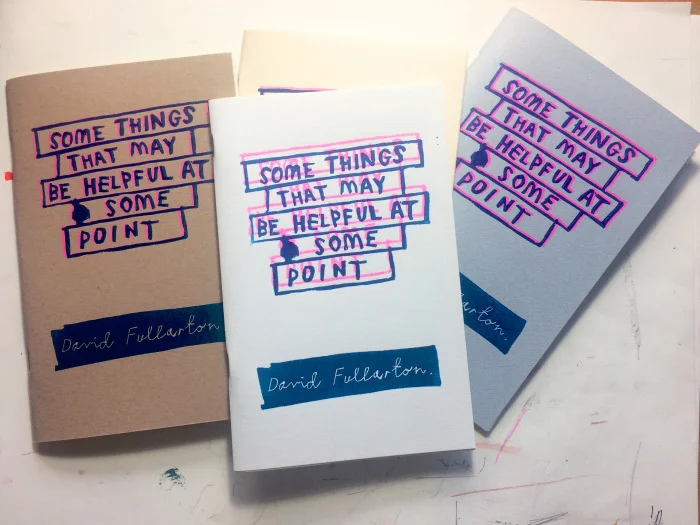 SOME THINGS
THAT MAY
BE HELPFUL AT
SOME
POINT
David Fullarton
SOME THINGS
THAT MAY
BE HELPFUL AT
SOME
POINT
David Fullarton.
SOME THINGS
THAT MAY
BE HELPFUL AT
SOME
POINT
arton.